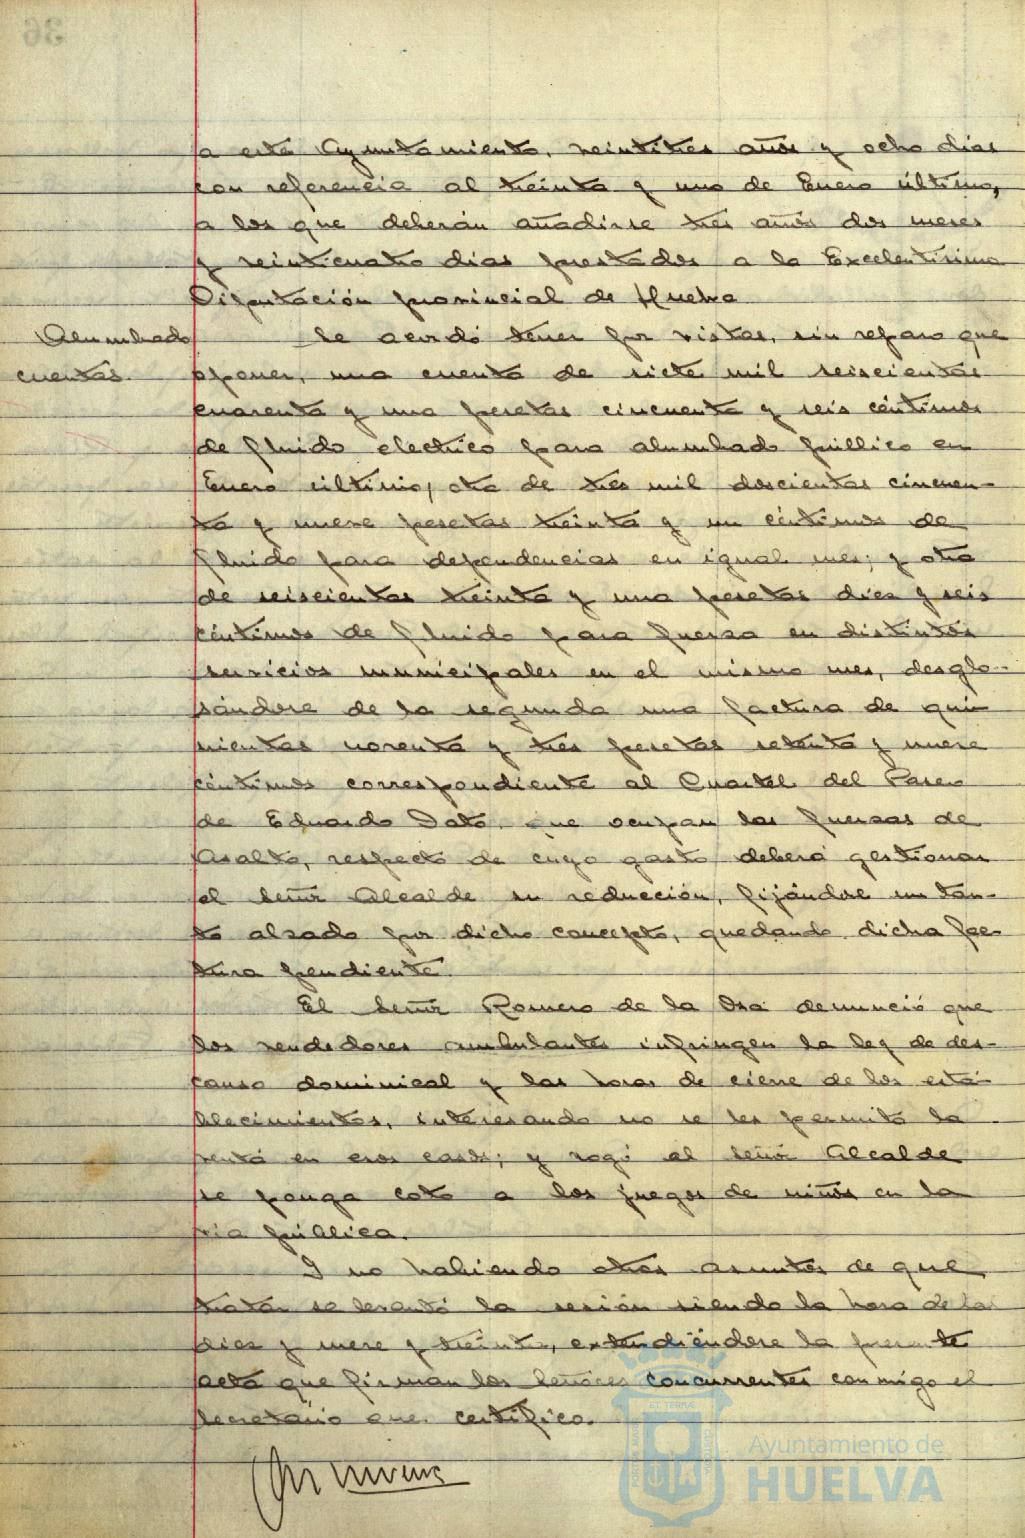 a este Ayuntamiento, veintitres años y ocho dias
con referencia al treinta y uno de Enero último,
a los que deberán añadirse tres años dos meses
y veinticuatro dias prestados a la Excelentísima
Diputación provincial de Huelva
Alumbrado
cuentas.
Se acordó tener por vistas, sin reparo que
oponer, una cuenta de siete mil seiscientas
cuarenta y una pesetas cincuenta y seis céntimos
de fluido electrico para alumbrado público en
Enero último; otra de tres mil doscientas cincuen-
ta y nueve pesetas treinta y un céntimos de
fluido para dependencias en igual mes; y otra
de seiscientas treinta y una pesetas diez y seis
céntimos de fluido para fuerza en distintos
servicios municipales en el mismo mes, desglo-
sándose de la segunda una factura de qui-
nientas noventa y tres pesetas setenta y nueve
céntimos correspondiente al Cuartel del Paseo
de Eduardo Dato que ocupan las fuerzas de
Asalto, respecto de cuyo gasto deberá gestionar
el Señor Alcalde su reducción, fijándose un tan-
to alzado por dicho concepto, quedando dicha fac-
tura pendiente.
El Señor Romero de la Osa denunció que
los vendedores ambulantes infringen la ley de des-
canso dominical y las horas de cierre de los esta-
blecimientos, interesando no se les permita la
venta en esos casos; y rogó al Señor Alcalde
se ponga coto a los juegos de niños en la
via pública.
Y no habiendo otros asuntos de que
tratar se levantó la sesión siendo la hora de las
diez y nueve y treinta, extendiéndose la presente
acta que firman los Señores concurrentes conmigo el
Secretario que certifico.
Ayuntamiento de
HUELVA